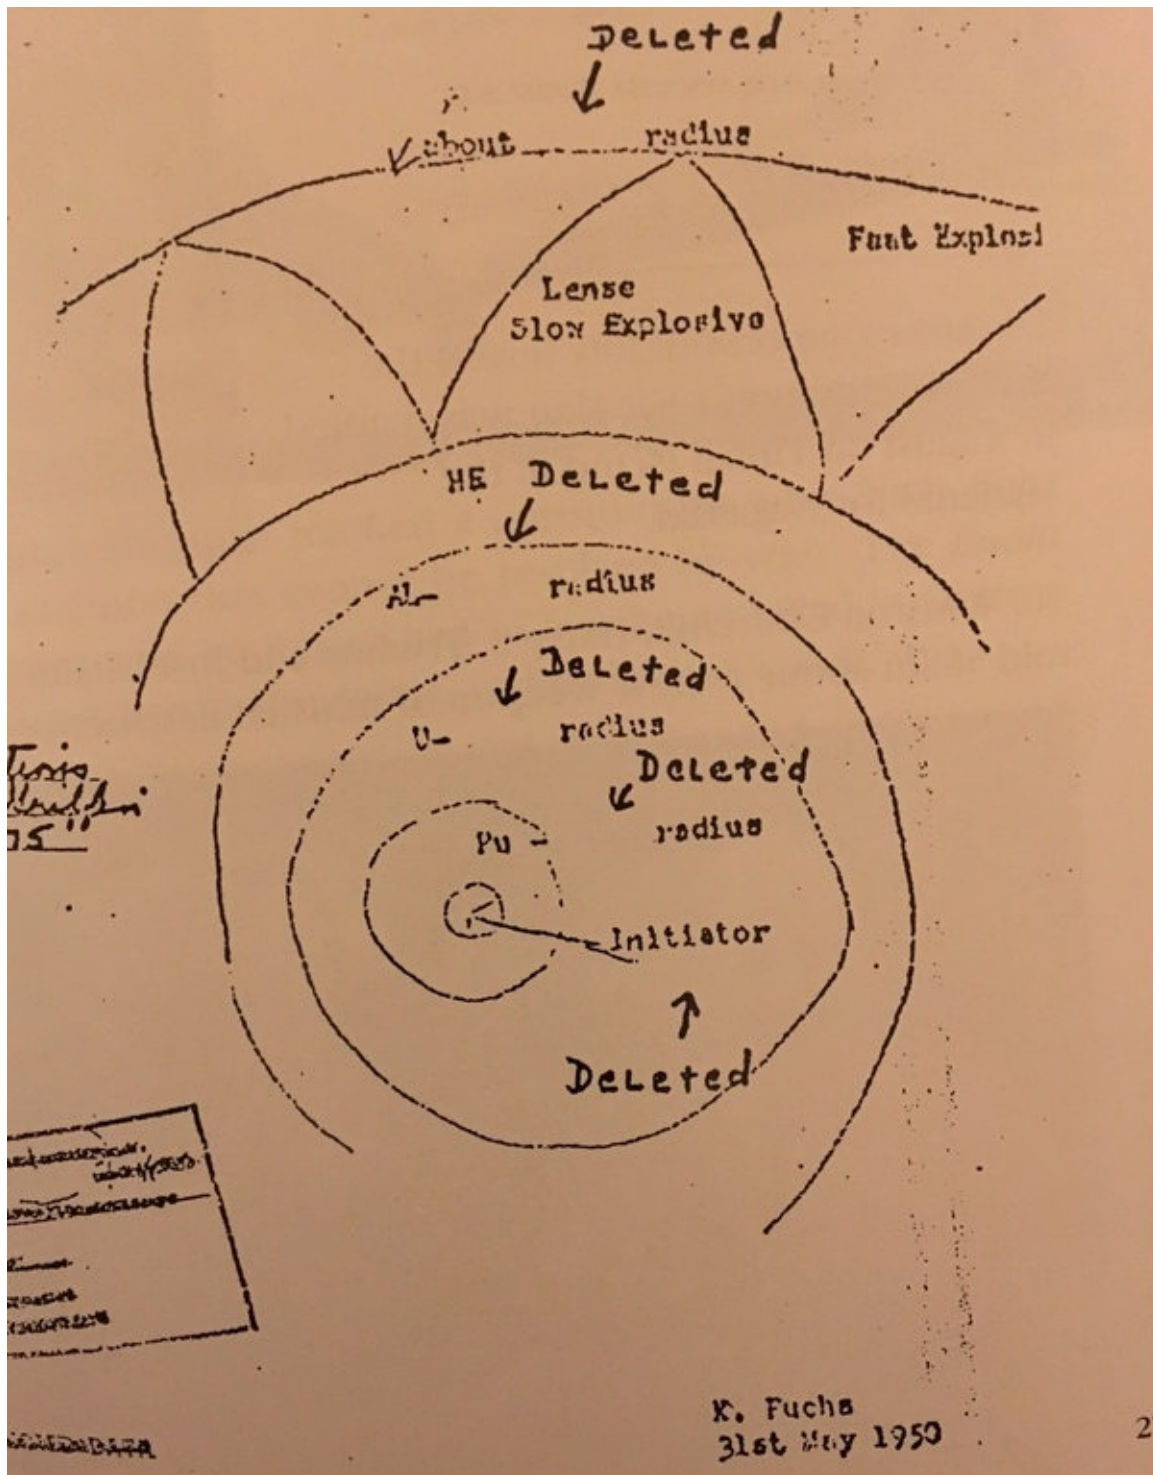 Deleted
about radius
Fast Explosi
Lense
Slow Explosive
HE Deleted
AL- radius
Deleted
U- radius
Deleted
Pu - radius
Initiator
Deleted
K. Fuchs
31st May 1950
2